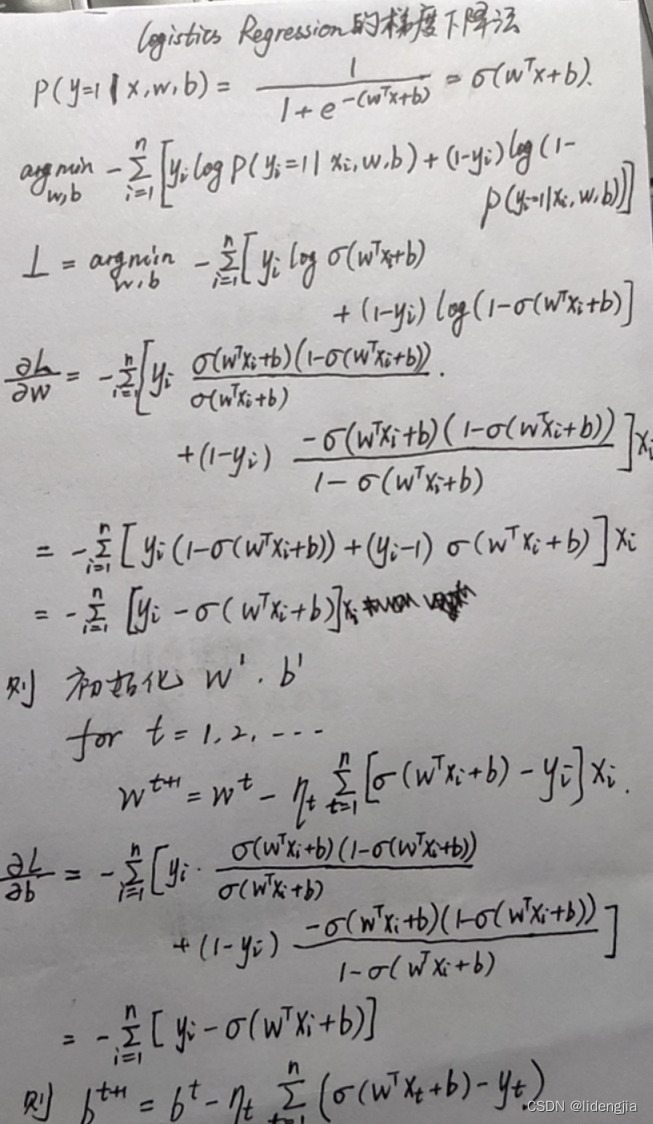 Logistics Regression的梯度下降法
P(y=1|x,w,b) = 1/(1+e^{-(w^Tx+b)}) = σ(w^Tx+b).
argmin_{w,b} -∑_{i=1}^{n}[y_i log P(y_i=1|x_i,w,b) + (1-y_i) log(1-
p(y_i=1|x_i,w,b))]
L = argmin_{w,b} -∑_{i=1}^{n}[y_i log σ(w^Tx_i+b)
+ (1-y_i) log(1-σ(w^Tx_i+b)]
∂L/∂w = -∑_{i=1}^{n}[y_i σ(w^Tx_i+b)(1-σ(w^Tx_i+b))/σ(w^Tx_i+b) .
+(1-y_i) -σ(w^Tx_i+b)(1-σ(w^Tx_i+b))/(1-σ(w^Tx_i+b))]x_i
= -∑_{i=1}^{n}[y_i(1-σ(w^Tx_i+b)) + (y_i-1) σ(w^Tx_i+b)]x_i
= -∑_{i=1}^{n}[y_i - σ(w^Tx_i+b)]x_i
则 初始化 w'. b'
for t = 1,2,...
w^{t+1} = w^t - η_t ∑_{t=1}^{n}[σ(w^Tx_i+b) - y_i]x_i.
∂L/∂b = -∑_{i=1}^{n}[y_i · σ(w^Tx_i+b)(1-σ(w^Tx_i+b))/σ(w^Tx_i+b)
+ (1-y_i) -σ(w^Tx_i+b)(1-σ(w^Tx_i+b))/(1-σ(w^Tx_i+b))]
= -∑_{i=1}^{n}[y_i - σ(w^Tx_i+b)]
则 b^{t+1} = b^t - η_t ∑_{t=1}^{n}(σ(w^Tx_t+b) - y_t)
CSDN @lidengjia